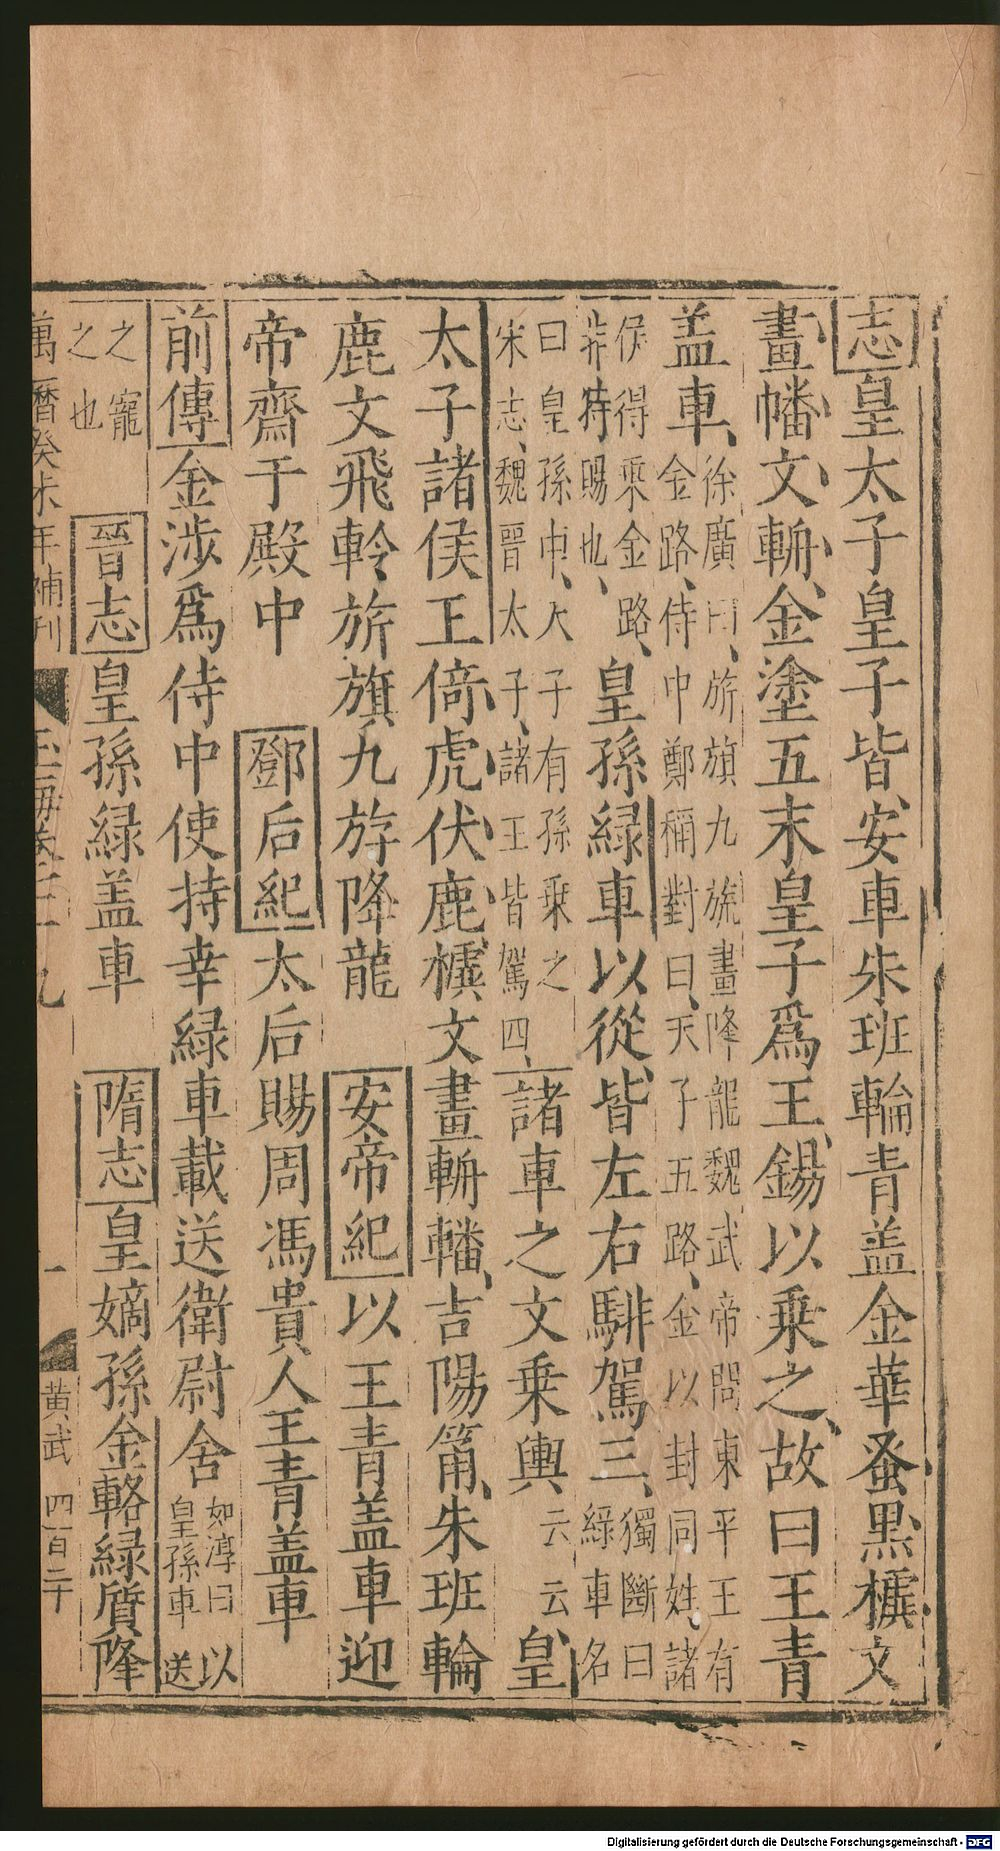 志皇太子皇子皆安車朱班輪青盖金華蚤黑櫎文
畫幡文輈金塗五末皇子爲王錫以乘之故曰王青
盖車徐廣曰旂旗九旒畫降龍魏武帝問東平王有
金路侍中鄭稱對曰天子五路金以封同姓諸
侯得乘金路皇孫緑車以從皆左右騑駕三獨斷曰
非特賜也綠車名
曰皇孫車天子有孫乘之諸車之文乘輿云云皇
宋志魏晋太子諸王皆駕四
太子諸侯王倚虎伏鹿櫎文畫輈轓吉陽筩朱班輪
鹿文飛軨旂旗九斿降龍 安帝紀以王青盖車迎
帝齋于殿中 鄧后紀太后賜周馮貴人王青盖車
前傳金涉爲侍中使持幸緑車載送衛尉舍如淳曰以
皇孫車送
之寵 晉志皇孫緑盖車 隋志皇嫡孫金輅緑質降
之也
萬曆癸未年補刊 玉海卷 九 黃武 四百二十
Digitalisierung gefördert durch die Deutsche Forschungsgemeinschaft - DFG